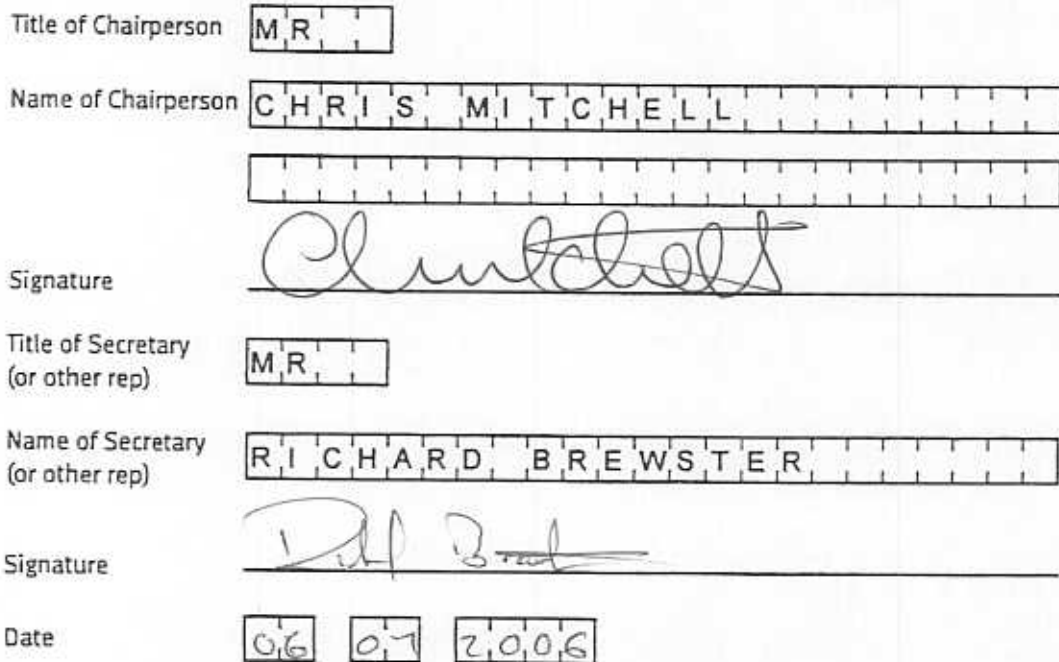 Title of Chairperson MR
Name of Chairperson CHRIS MITCHELL
Signature
Title of Secretary
(or other rep) MR
Name of Secretary
(or other rep) RICHARD BREWSTER
Signature
Date 06 07 2006